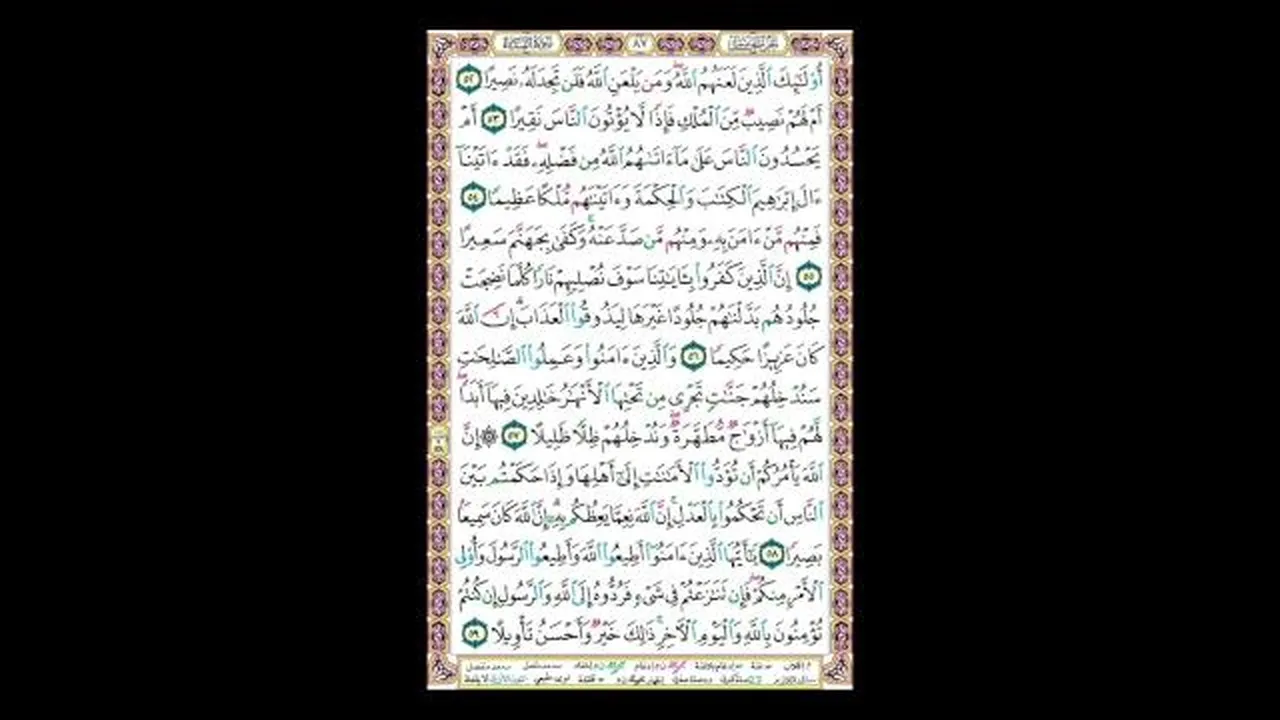 سورة النساء
٨٧
أُوْلَـٰٓئِكَ ٱلَّذِينَ لَعَنَهُمُ ٱللَّهُۖ وَمَن يَلْعَنِ ٱللَّهُ فَلَن تَجِدَ لَهُۥ نَصِيرًا ٥٢
أَمْ لَهُمْ نَصِيبٌ مِّنَ ٱلْمُلْكِ فَإِذًا لَّا يُؤْتُونَ ٱلنَّاسَ نَقِيرًا ٥٣ أَمْ
يَحْسُدُونَ ٱلنَّاسَ عَلَىٰ مَآ ءَاتَىٰهُمُ ٱللَّهُ مِن فَضْلِهِۦۖ فَقَدْ ءَاتَيْنَآ
ءَالَ إِبْرَٰهِيمَ ٱلْكِتَـٰبَ وَٱلْحِكْمَةَ وَءَاتَيْنَـٰهُم مُّلْكًا عَظِيمًا ٥٤
فَمِنْهُم مَّنْ ءَامَنَ بِهِۦ وَمِنْهُم مَّن صَدَّ عَنْهُۚ وَكَفَىٰ بِجَهَنَّمَ سَعِيرًا
٥٥ إِنَّ ٱلَّذِينَ كَفَرُوا۟ بِـَٔايَـٰتِنَا سَوْفَ نُصْلِيهِمْ نَارًا كُلَّمَا نَضِجَتْ
جُلُودُهُم بَدَّلْنَـٰهُمْ جُلُودًا غَيْرَهَا لِيَذُوقُوا۟ ٱلْعَذَابَۗ إِنَّ ٱللَّهَ
كَانَ عَزِيزًا حَكِيمًا ٥٦ وَٱلَّذِينَ ءَامَنُوا۟ وَعَمِلُوا۟ ٱلصَّـٰلِحَـٰتِ
سَنُدْخِلُهُمْ جَنَّـٰتٍ تَجْرِى مِن تَحْتِهَا ٱلْأَنْهَـٰرُ خَـٰلِدِينَ فِيهَآ أَبَدًاۖ
لَّهُمْ فِيهَآ أَزْوَٰجٌ مُّطَهَّرَةٌۖ وَنُدْخِلُهُمْ ظِلًّا ظَلِيلًا ٥٧ ۞ إِنَّ
ٱللَّهَ يَأْمُرُكُمْ أَن تُؤَدُّوا۟ ٱلْأَمَـٰنَـٰتِ إِلَىٰٓ أَهْلِهَا وَإِذَا حَكَمْتُم بَيْنَ
ٱلنَّاسِ أَن تَحْكُمُوا۟ بِٱلْعَدْلِۚ إِنَّ ٱللَّهَ نِعِمَّا يَعِظُكُم بِهِۦٓۗ إِنَّ ٱللَّهَ كَانَ سَمِيعًۢا
بَصِيرًا ٥٨ يَـٰٓأَيُّهَا ٱلَّذِينَ ءَامَنُوٓا۟ أَطِيعُوا۟ ٱللَّهَ وَأَطِيعُوا۟ ٱلرَّسُولَ وَأُو۟لِى
ٱلْأَمْرِ مِنكُمْۖ فَإِن تَنَـٰزَعْتُمْ فِى شَىْءٍ فَرُدُّوهُ إِلَى ٱللَّهِ وَٱلرَّسُولِ إِن كُنتُمْ
تُؤْمِنُونَ بِٱللَّهِ وَٱلْيَوْمِ ٱلْـَٔاخِرِۚ ذَٰلِكَ خَيْرٌ وَأَحْسَنُ تَأْوِيلًا ٥٩